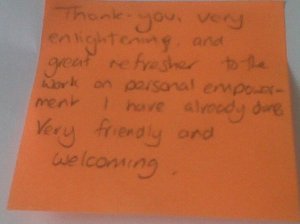 Thank-you, very
enlightening, and
great refresher to the
work on personal empower-
ment I have already done
Very friendly and
welcoming.